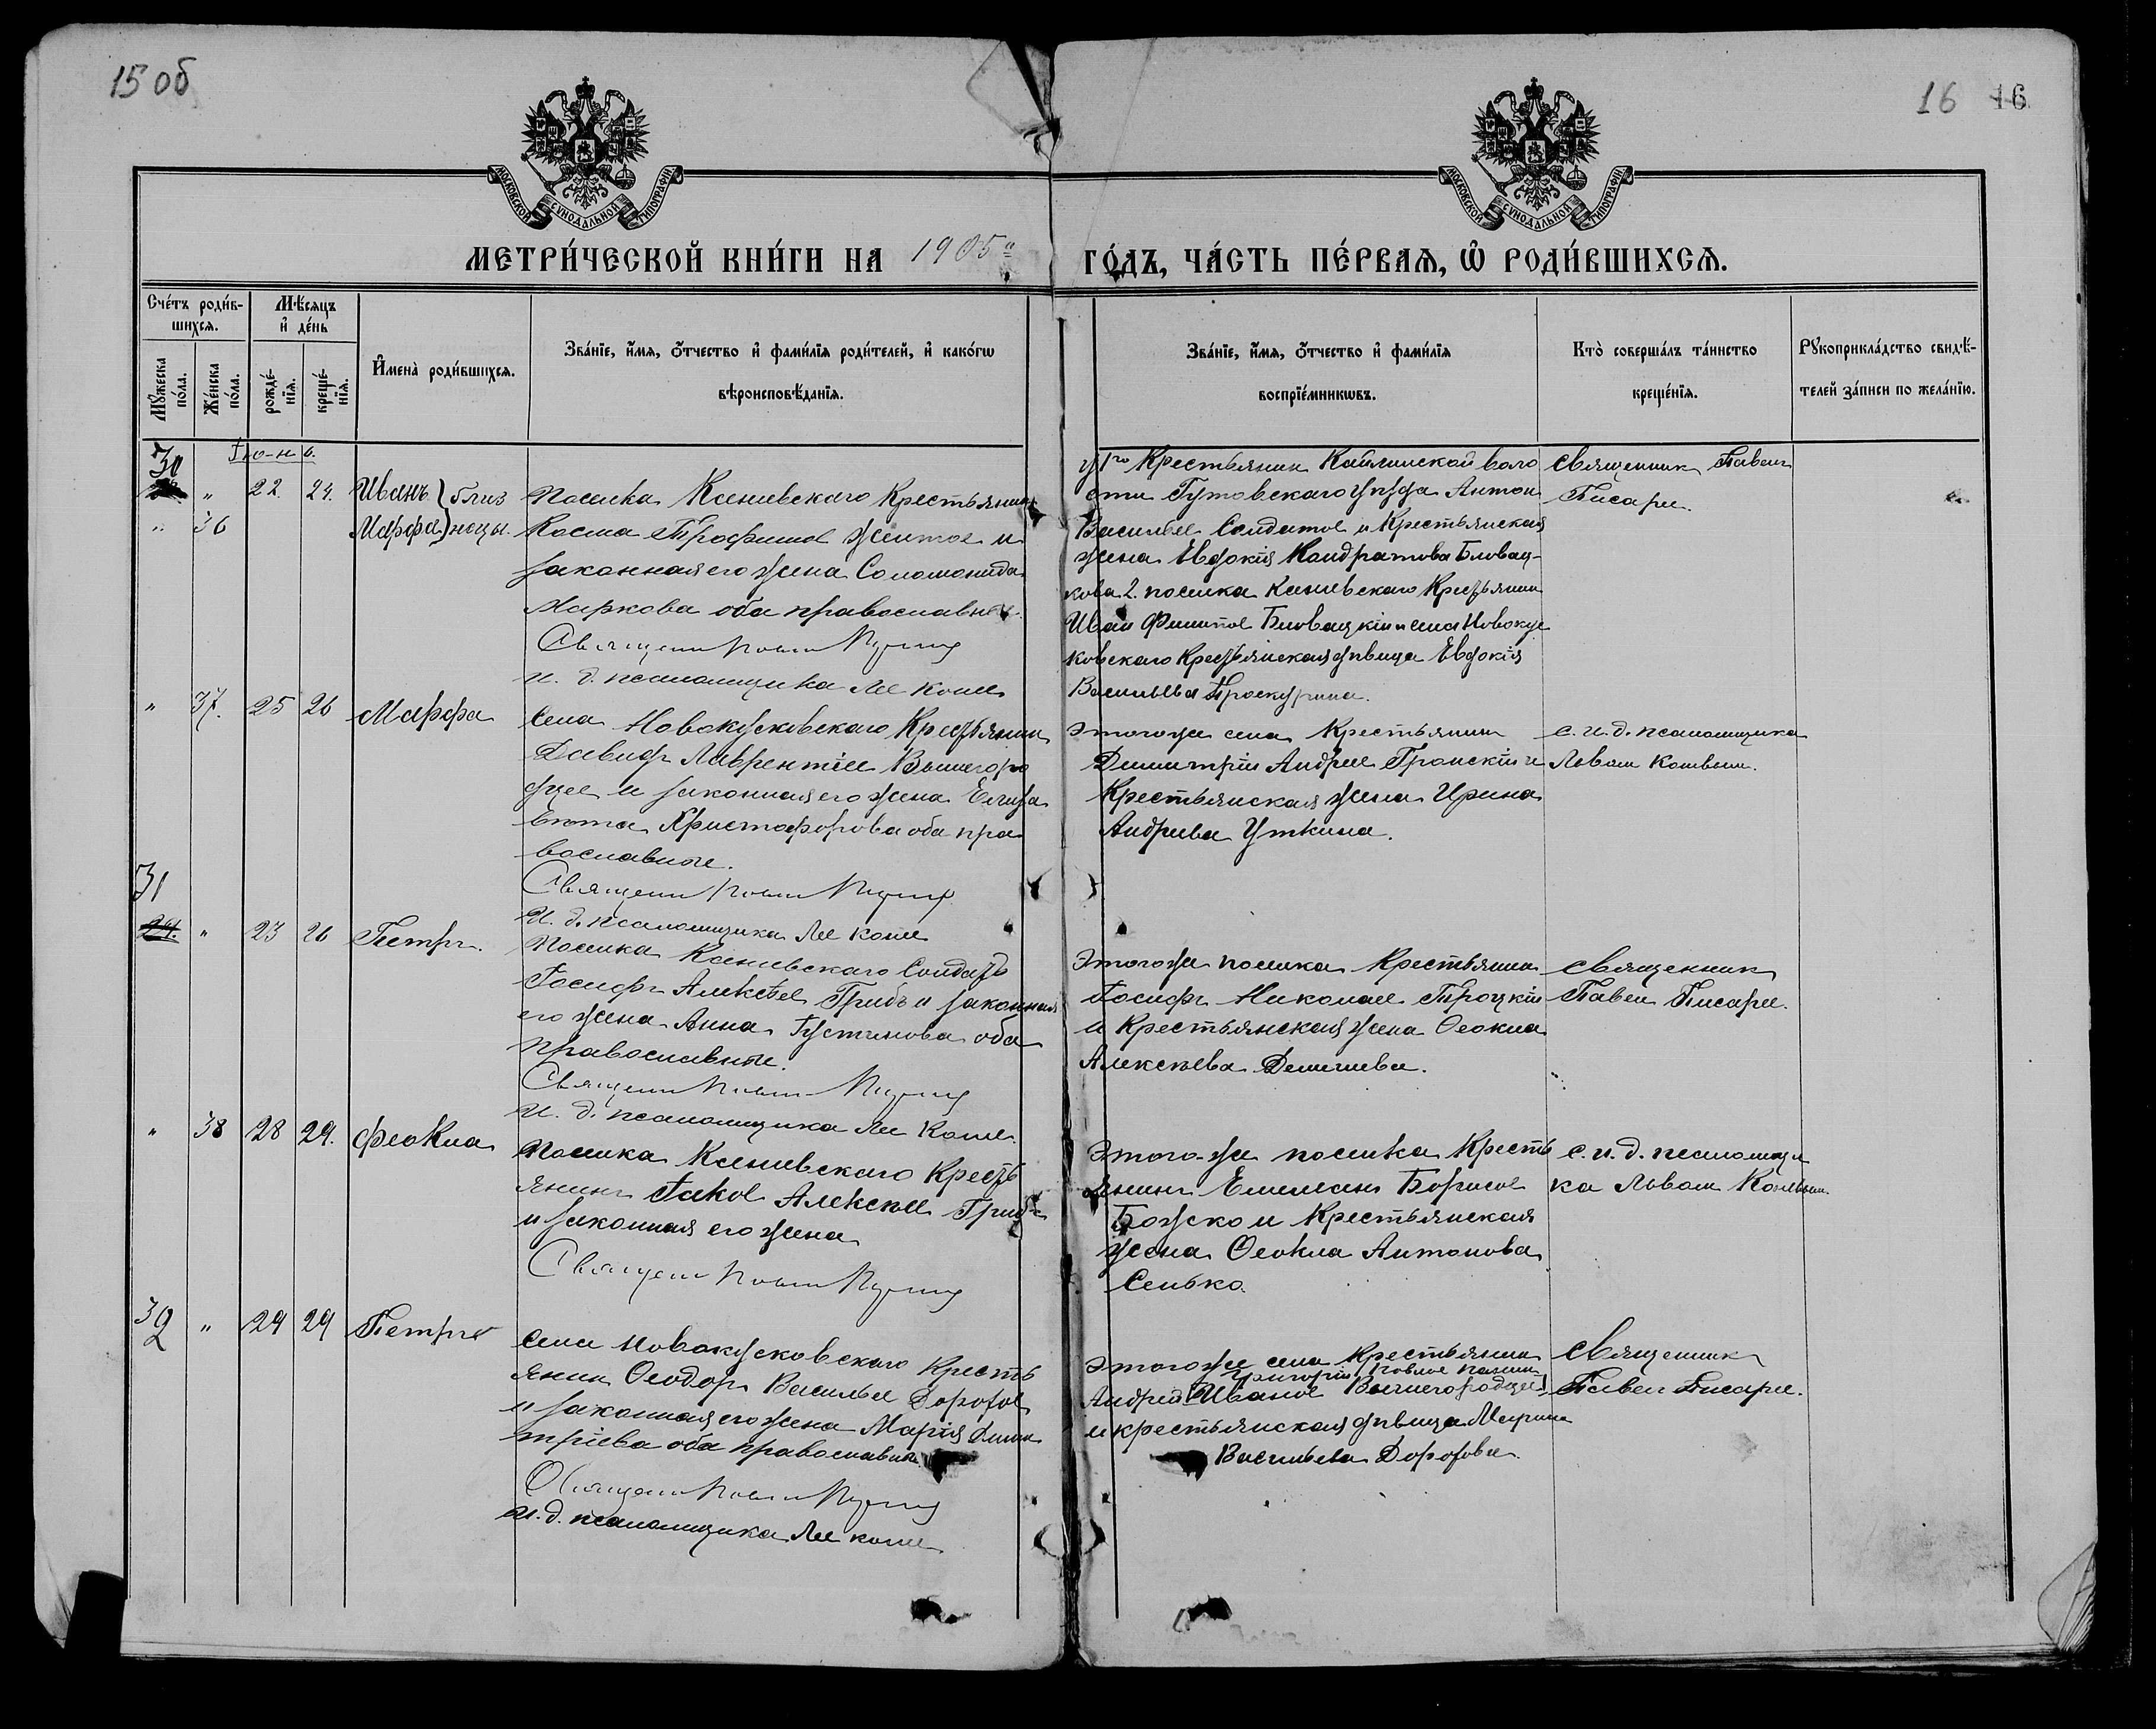 15 об
16 16
МОСКОВСКОЙ СѴНОДАЛЬНОЙ ТИПОГРАФІИ
МОСКОВСКОЙ СѴНОДАЛЬНОЙ ТИПОГРАФІИ
МЕТРИ́ЧЕСКОЙ КНИ́ГИ НА 1905 ГО́ДЪ, ЧА́СТЬ ПЕ́РВАЯ, Ѡ РОДИ́ВШИХСЯ.
Сче́тъ роди́в-
шихся.
Му́жеска по́ла.
Же́нска по́ла.
Мѣ́сяцъ
и де́нь
рожде́-нїя.
креще́-нїя.
Имена̀ роди́вшихся.
Зва́нїе, и́мя, о́тчество и фами́лїя роди́телей, и како́гѡ
вѣроисповѣ́данїя.
Зва́нїе, и́мя, о́тчество и фами́лїя
воспрїе́мникѡвъ.
Кто̀ соверша́лъ та́инство
креще́нїя.
Рукоприкла́дство свидѣ́-
телей за́писи по жела́нїю.
Іюнь.
30 " 22. 24. Иванъ } близ
" 36 Марфа } нецы.
поселка Ксеневскаго Крестьянин
Косма Трофимов Житов и
законная его жена Соломонида
Маркова оба православные.
и. д. псаломщика Лев
Крестьянин воло
сти уезда Антон
Васильев Солдатов и Крестьянская
жена Евдокія Кондратова
кова 2. поселка Ксеневскаго Крестьянин
Иван Филипов и села Новокус
ковскаго Крестьянская девица Евдокія
Васильева Проскурина.
священник Павел
Писарев.
" 37. 25 26 Марфа
Села Новокусковскаго Крестьянин
Давид Лаврентіев Вышегоро
дцев и законная его жена Елиза
вета Христофорова оба пра
вославные.
и. д. псаломщика Лев
этого же села Крестьянин
Димитрій Андреев и
Крестьянская жена Ирина
Андреева Уткина.
с. и. д. псаломщика
Львом
31
24. " 23 26 Петръ.
поселка Ксеневскаго Солдатъ
Іосифъ Алексѣев Грибъ и законная
его жена Анна Іустинова оба
православные.
и. д. псаломщика Лев
Этого же поселка Крестьянин
Іосифъ Николаев Троцкій
и Крестьянская жена Ѳеокла
Алексѣева
священник
Павел Писарев.
" 38 28 29. Феокла
поселка Ксеневскаго Кресть
янинъ Іаков Алексѣев Грибъ
и законная его жена
Этого-же поселка Кресть
янинъ Емелианъ Борисов
Божско и Крестьянская
жена Ѳеокла Антонова
Сенько.
с. и. д. псаломщи
ка Львом
32 " 29 29 Петръ
села Новокусковскаго Кресть
янин Ѳеодоръ Васильев Дорофов
и законная его жена Марія Дими
тріева оба православные
и. д. псаломщика Лев
Этого же села Крестьянин
Григорій
Андрей Иванов Вышегородцев
и крестьянская девица Марина
Васильева Дорофова.
священник
Павел Писарев.